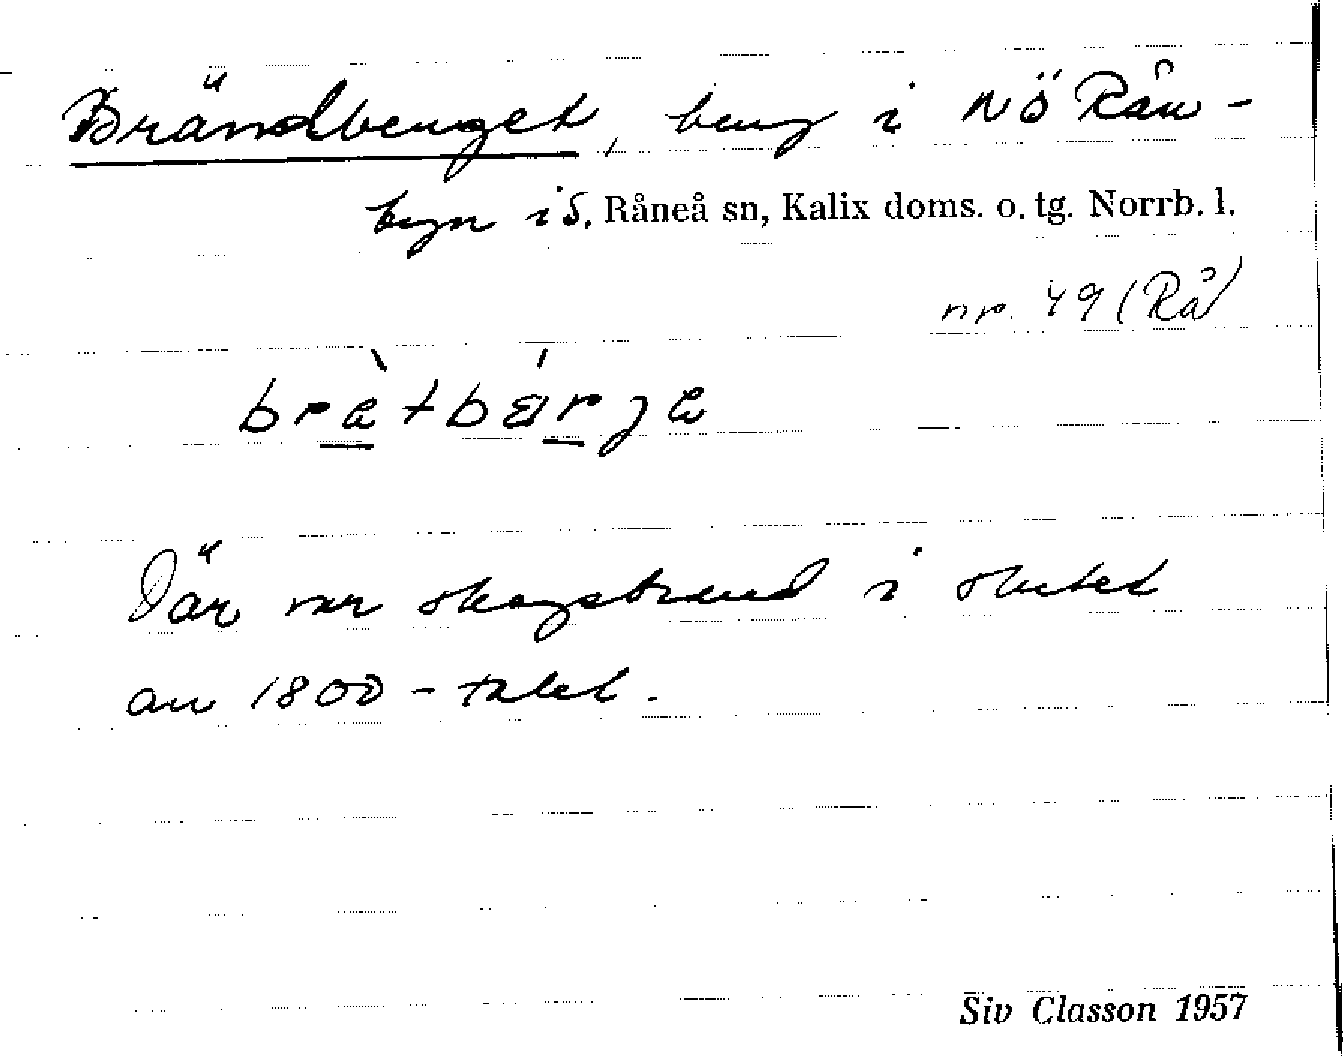 Brändberget, berg i NÖ Rån-
byn i S. Råneå sn, Kalix doms. o. tg. Norrb. l.
nr. 49 (Rå)
brὲtbárjɐ
Där var skogsbrand i slutet
av 1800-talet.
Siv Classon 1957